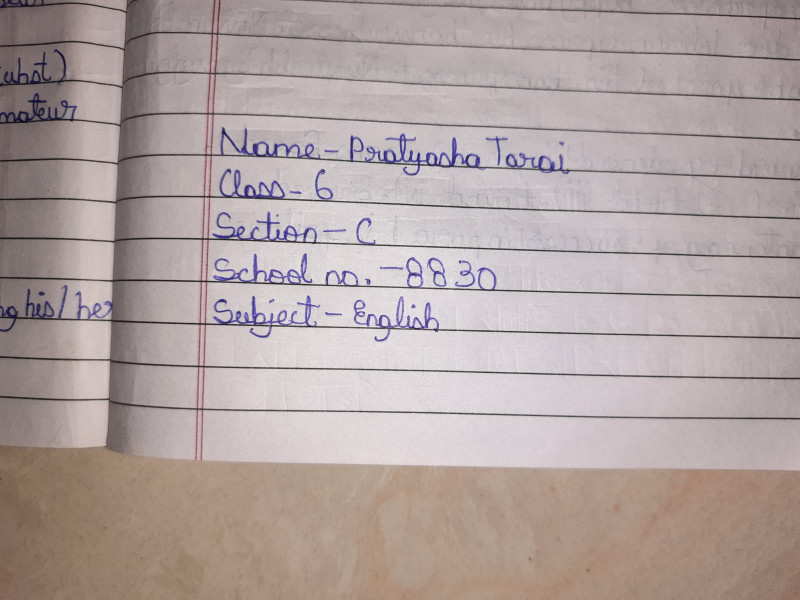 uhot)
mateur
g his/her
Name - Pratyasha Tarai
Class - 6
Section - C
School no. - 8830
Subject - English